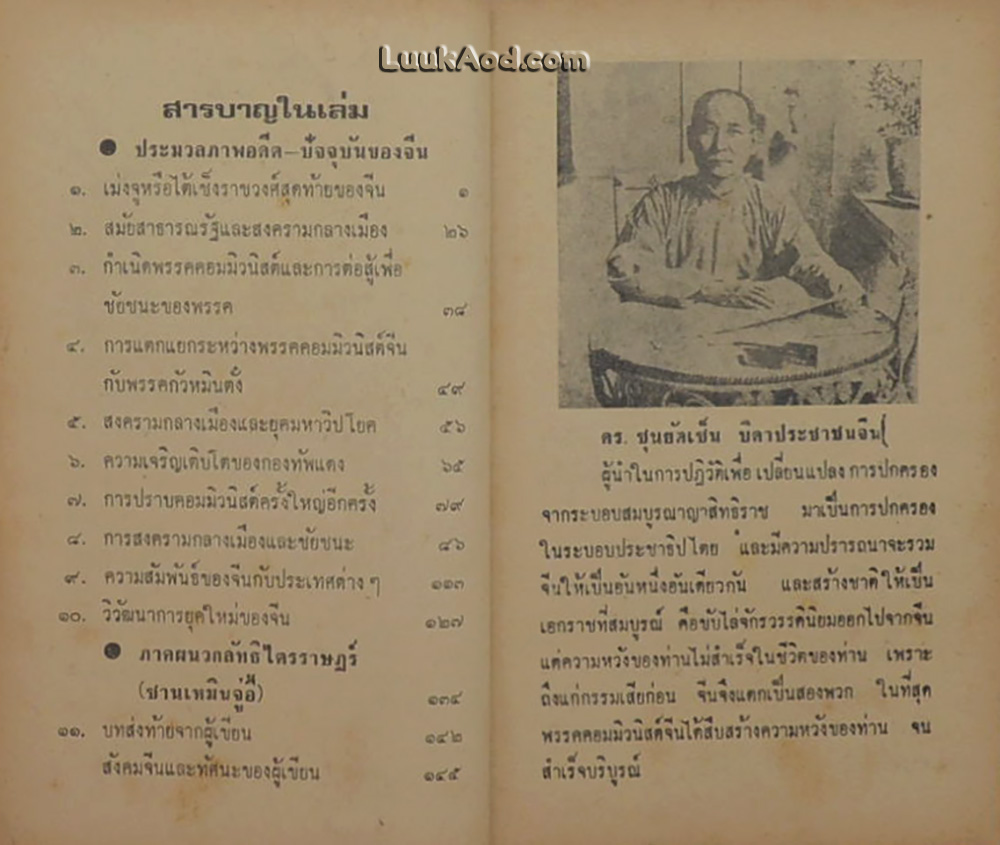 LuukAod.com
สารบาญในเล่ม
● ประมวลภาพอดีต—ปัจจุบันของจีน
๑. เม่งจูหรือไต้เช็งราชวงศ์สุดท้ายของจีน ๑
๒. สมัยสาธารณรัฐและสงครามกลางเมือง ๒๖
๓. กำเนิดพรรคคอมมิวนิสต์และการต่อสู้เพื่อ
ชัยชนะของพรรค ๓๘
๔. การแตกแยกระหว่างพรรคคอมมิวนิสต์จีน
กับพรรคก๊วหมินตั๋ง ๔๙
๕. สงครามกลางเมืองและยุคมหาวิปโยค ๕๖
๖. ความเจริญเติบโตของกองทัพแดง ๖๕
๗. การปราบคอมมิวนิสต์ครั้งใหญ่อีกครั้ง ๗๙
๘. การสงครามกลางเมืองและชัยชนะ ๘๖
๙. ความสัมพันธ์ของจีนกับประเทศต่าง ๆ ๑๑๓
๑๐. วิวัฒนาการยุคใหม่ของจีน ๑๒๗
● ภาคผนวกลัทธิไตรราษฎร์
(ซานเหมินจู่อี้) ๑๓๔
๑๑. บทส่งท้ายจากผู้เขียน ๑๔๒
สังคมจีนและทัศนะของผู้เขียน ๑๔๕
ดร. ซุนยัดเซ็น บิดาประชาชนจีน
ผู้นำในการปฏิวัติเพื่อ เปลี่ยนแปลง การปกครอง
จากระบอบสมบูรณาญาสิทธิราช มาเป็นการปกครอง
ในระบอบประชาธิปไตย และมีความปรารถนาจะรวม
จีนให้เป็นอันหนึ่งอันเดียวกัน และสร้างชาติให้เป็น
เอกราชที่สมบูรณ์ คือขับไล่จักรวรรดินิยมออกไปจากจีน
แต่ความหวังของท่านไม่สำเร็จในชีวิตของท่าน เพราะ
ถึงแก่กรรมเสียก่อน จีนจึงแตกเป็นสองพวก ในที่สุด
พวรรคคอมมิวนิสต์จีนได้สืบสร้างความหวังของท่าน จน
สำเร็จบริบูรณ์